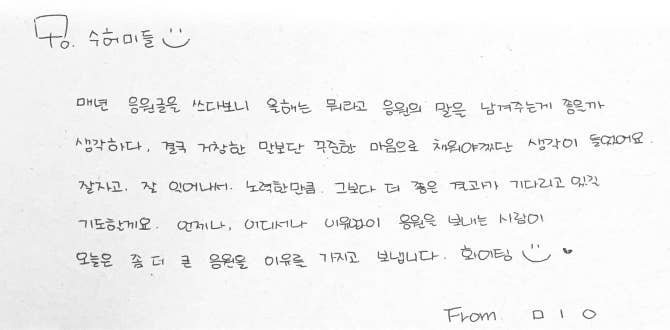 To. 수험미들
매년 응원글을 쓰다보니 올해는 뭐라고 응원의 말을 남겨주는게 좋은가
생각하다, 결국 거창한 말보단 꾸준한 마음으로 채워야겠단 생각이 들었어요.
잘자고, 잘 일어나서, 노력한만큼, 그보다 더 좋은 결과가 기다리고 있길
기도할게요. 언제나, 어디서나 이유없이 응원을 보내는 사람이
오늘은 좀 더 큰 응원을 이유를 가지고 보냅니다. 화이팅
From. ㅁㅣㅇ